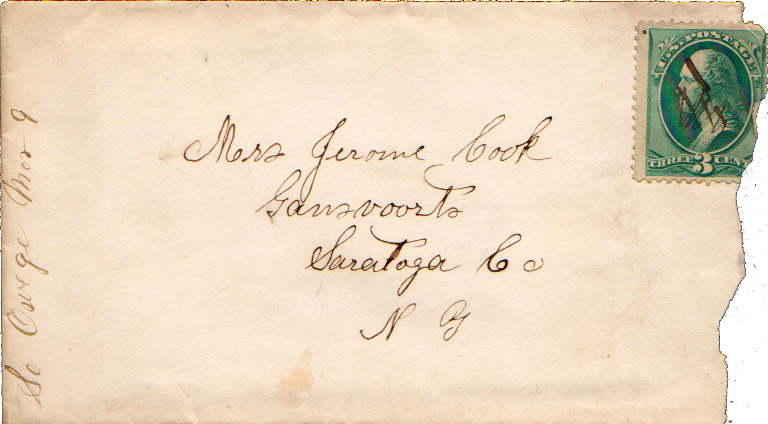 U.S. POSTAGE
THREE 3 CEN
Mrs Jerome Cook
Gansvoorts
Saratoga Co
N Y
So Owego Mar 9